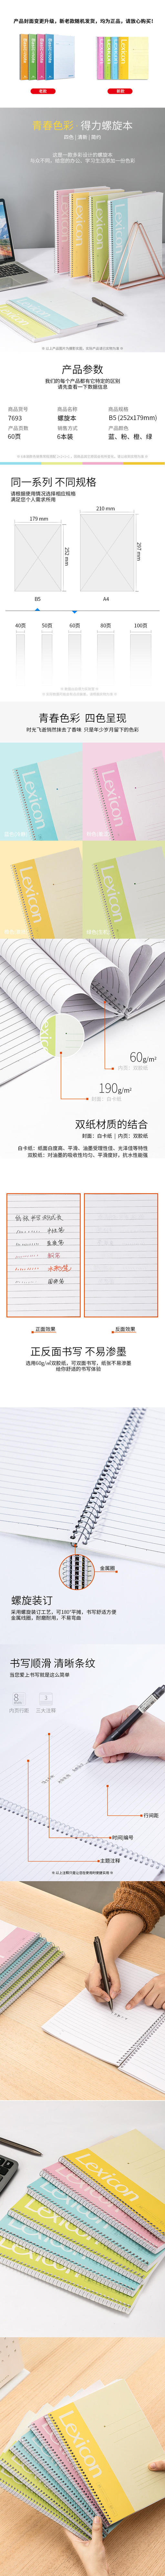 产品封面变更升级，新老款随机发货，均为正品，请放心购买！
老款
新款
青春色彩 · 得力螺旋本
四色 | 清新 | 简约
这是一款多彩设计的螺旋本
与以不同，给您的办公、学习生活添加一份色彩
产品参数
我们的每个产品都有它特定的区别
请先查看一下数据信息
商品货号
商品名称
商品规格
7693
螺旋本
B5 (252x179mm)
产品页数
销售方式
产品颜色
60页
6本装
蓝、粉、橙、绿
同一系列 不同规格
请根据使用情况选择相应规格
满足您个人需求所用
210 mm
179 mm
252 mm
297 mm
B5
A4
40页
50页
60页
80页
100页
青春色彩 四色呈现
时光飞逝悄然抹去了香味 只是年少岁月留下的色彩
Lexicon
Lexicon
Lexicon
Lexicon
60g/m²
内页：双胶纸
190g/m²
封面：白卡纸
双纸材质的结合
封面：白卡纸 | 内页：双胶纸
白卡纸：纸面白度高、平滑、油墨受理性佳、光泽佳等特性
双胶纸：对油墨的吸收性均匀、平滑度好，抗水性能强
正面效果
反面效果
正反面书写 不易渗墨
选用60g/㎡双胶纸，可双面书写，纸张不易渗墨
给你舒适的书写体验
金属圈
螺旋装订
采用螺旋装订工艺，可180°平摊，书写舒适方便
金属线圈，耐磨耐用，不易弯曲
书写顺滑 清晰条纹
当您爱上书写就是这么简单
8
3
内页行距
三大注释
行间距
时间编号
主题注释
Lexicon
Lexicon
Lexicon
Lexicon
Lexicon